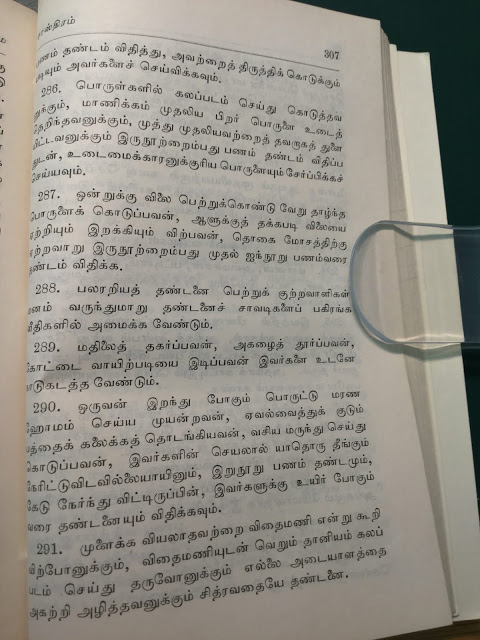 ாஸ்திரம்
307
ணம் தண்டம் விதித்து, அவற்றைத் திருத்திக் கொடுக்கும்
டியும் அவர்களைச் செய்விக்கவும்.
286. பொருள்களில் கலப்படம் செய்து கொடுத்தவ
னுக்கும், மாணிக்கம் முதலிய பிறர் பொருளை உடைத்
தெறிந்தவனுக்கும், முத்து முதலியவற்றைத் தவறாகத் துளை
யிட்டவனுக்கும் இருநூற்றைம்பது பணம் தண்டம் விதிப்ப
துடன், உடைமைக்காரனுக்குரிய பொருளையும் சேர்ப்பிக்கச்
செய்யவும்.
287. ஒன்றுக்கு விலை பெற்றுக்கொண்டு வேறு தாழ்ந்த
பொருளைக் கொடுப்பவன், ஆளுக்குத் தக்கபடி விலையை
ஏற்றியும் இறக்கியும் விற்பவன், தொகை மோசத்திற்கு
ஏற்றவாறு இருநூற்றைம்பது முதல் ஐந்நூறு பணம்வரை
தண்டம் விதிக்க.
288. பலரறியத் தண்டனை பெற்றுக் குற்றவாளிகள்
மனம் வருந்துமாறு தண்டனைச் சாவடிகளைப் பகிரங்க
வீதிகளில் அமைக்க வேண்டும்.
289. மதிலைத் தகர்ப்பவன், அகழைத் தூர்ப்பவன்,
கோட்டை வாயிற்படியை இடிப்பவன் இவர்களை உடனே
நாடுகடத்த வேண்டும்.
290. ஒருவன் இறந்து போகும் பொருட்டு மரண
ஹோமம் செய்ய முயன்றவன், ஏவல்வைத்துக் குடும்
பத்தைக் கலைக்கத் தொடங்கியவன், வசிய மருந்து செய்து
கொடுப்பவன், இவர்களின் செயலால் யாதொரு தீங்கும்
நேரிட்டுவிடவில்லையாயினும், இறுநூறு பணம் தண்டமும்,
கேடு நேர்ந்து விட்டிருப்பின், இவர்களுக்கு உயிர் போகும்
வரை தண்டனையும் விதிக்கவும்.
291. முளைக்க வியலாதவற்றை விதைமணி என்று கூறி
விற்போனுக்கும், விதைமணியுடன் வெறும் தானியம் கலப்
படம் செய்து தருவோனுக்கும் எல்லை அடையாளத்தை
அகற்றி அழித்தவனுக்கும் சித்ரவதையே தண்டனை.